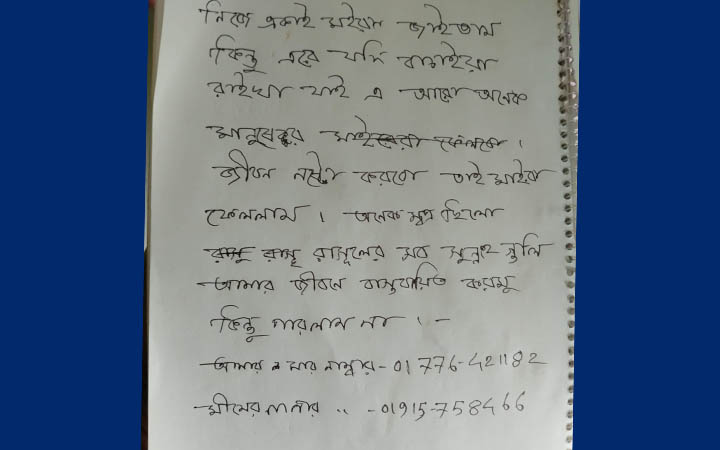 নিজে একাই মইরা জাইতাম
কিন্তু এরে যদি বাচাইয়া
রাইখা যাই এ আরো অনেক
মানুষের মাইরা ফেলবো।
জীবন নষ্টো করবো তাই মাইরা
ফেললাম। অনেক স্বপ্ন ছিলো
রাসূলের সব সুন্নাহ গুলি
আমার জীবনে বাস্তবায়িত করমু
কিন্তু পারলাম না। -
আমার মার নাম্বার - 01776-421182
মীমের নানার " - 01915-758466